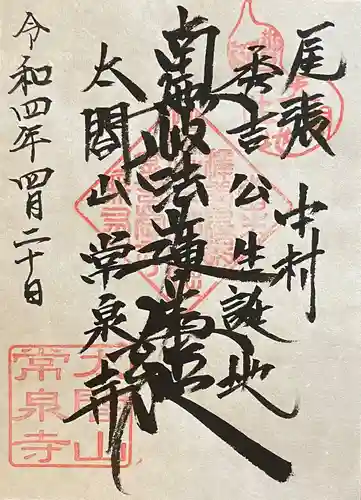 尾張 中村
秀吉公生誕地
南無妙法蓮華経
太閤山常泉寺
令和四年四月二十日
太閤山
常泉寺